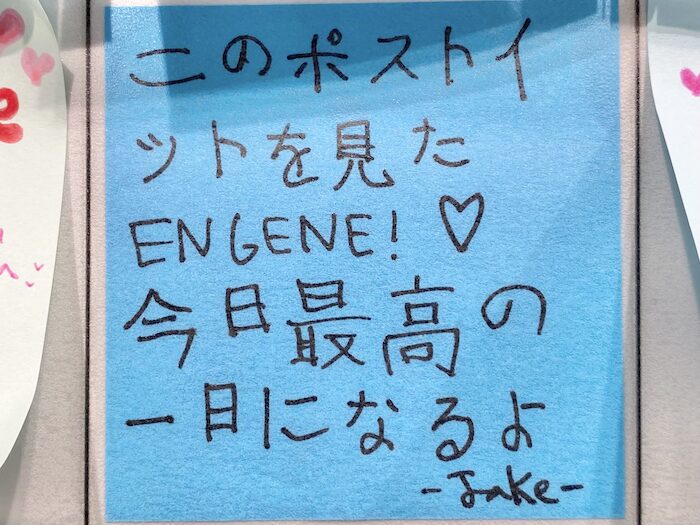 このポストイ
ットを見た
ENGENE! ♡
今日最高の
一日になるよ
-Jake-